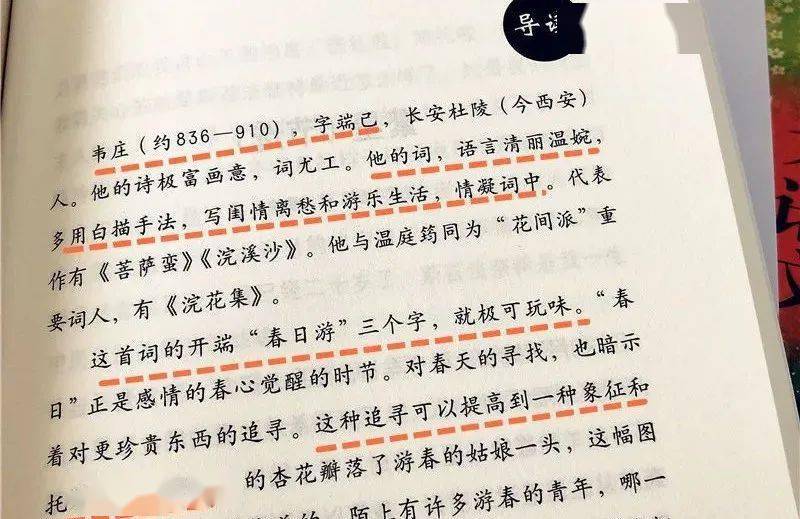 导读
韦庄（约836—910），字端己，长安杜陵（今西安）
人。他的诗极富画意，词尤工。他的词，语言清丽温婉，
多用白描手法，写闺情离愁和游乐生活，情凝词中。代表
作有《菩萨蛮》《浣溪沙》。他与温庭筠同为“花间派”重
要词人，有《浣花集》。
这首词的开端“春日游”三个字，就极可玩味。“春
日”正是感情的春心觉醒的时节。对春天的寻找，也暗示
着对更珍贵东西的追寻。这种追寻可以提高到一种象征和
托
的杏花瓣落了游春的姑娘一头，这幅图
陌上有许多游春的青年，哪一